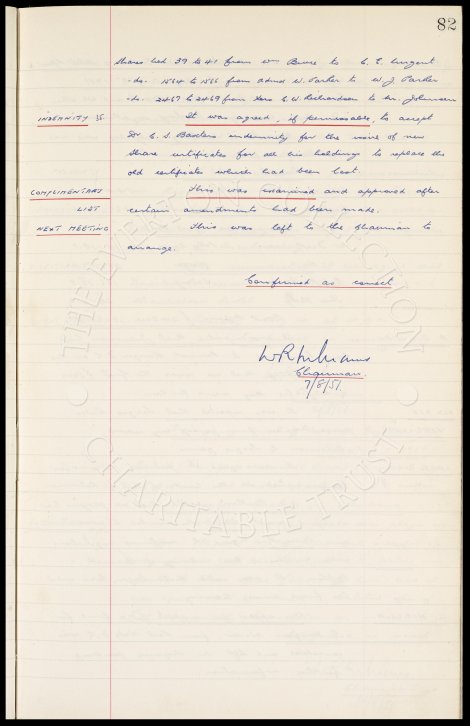 82
Shares Nos 39 to 41 from Wm Bruce to C. E.
-do- 1564 to 1566 from Admx W. Parker to W. J. Parker
-do- 2467 to 2469 from Exors C. W. Richardson to Mr Johnson
INDEMNITY It was agreed, if permissable, to accept
Dr C. S. Baxters indemnity for the issue of new
share certificates for all his holdings to replace the
old certificates which had been lost.
COMPLIMENTARY This was examined and approved after
LIST certain amendments had been made.
NEXT MEETING This was left to the Chairman to
arrange.
Confirmed as correct
W R Williams
Chairman.
7/8/51.
THE EVERTON COLLECTION
CHARITABLE TRUST